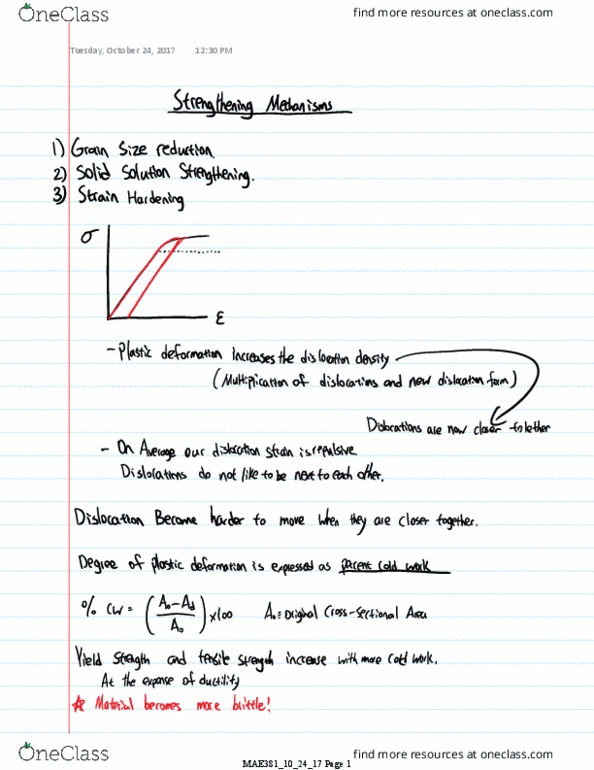 OneClass
find more resources at oneclass.com
Tuesday, October 24, 2017 12:30 PM
Strengthening Mechanisms
1) Grain Size reduction
2) Solid Solution Strengthening.
3) Strain Hardening
σ
ε
- Plastic deformation increases the dislocation density
(Multiplication of dislocations and new dislocation form)
Dislocations are now closer to lether
- On Average our dislocation strain is repulsive
Dislocations do not like to be next to each other.
Dislocation Become harder to move when they are closer together.
Degree of plastic deformation is expressed as percent cold work
% CW = (A₀-A_d / A₀) x100 A₀ = Original Cross-Sectional Area
Yield Strength and tensile strength increase with more cold work.
At the expense of ductility
☆ Material becomes more brittle!
OneClass
MAE381_10_24_17 Page 1
find more resources at oneclass.com